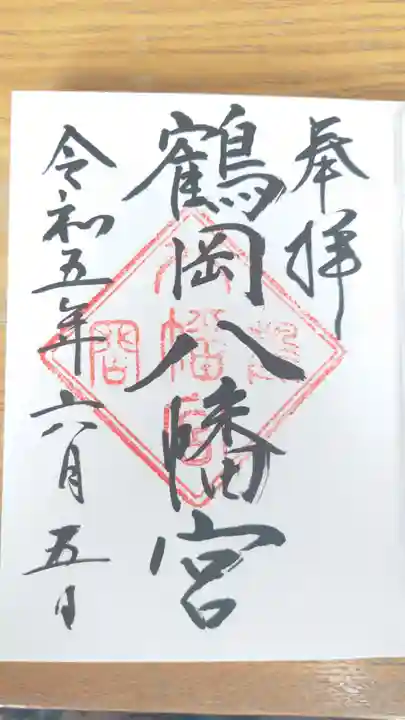 奉拝
鶴岡八幡宮
令和五年六月五日